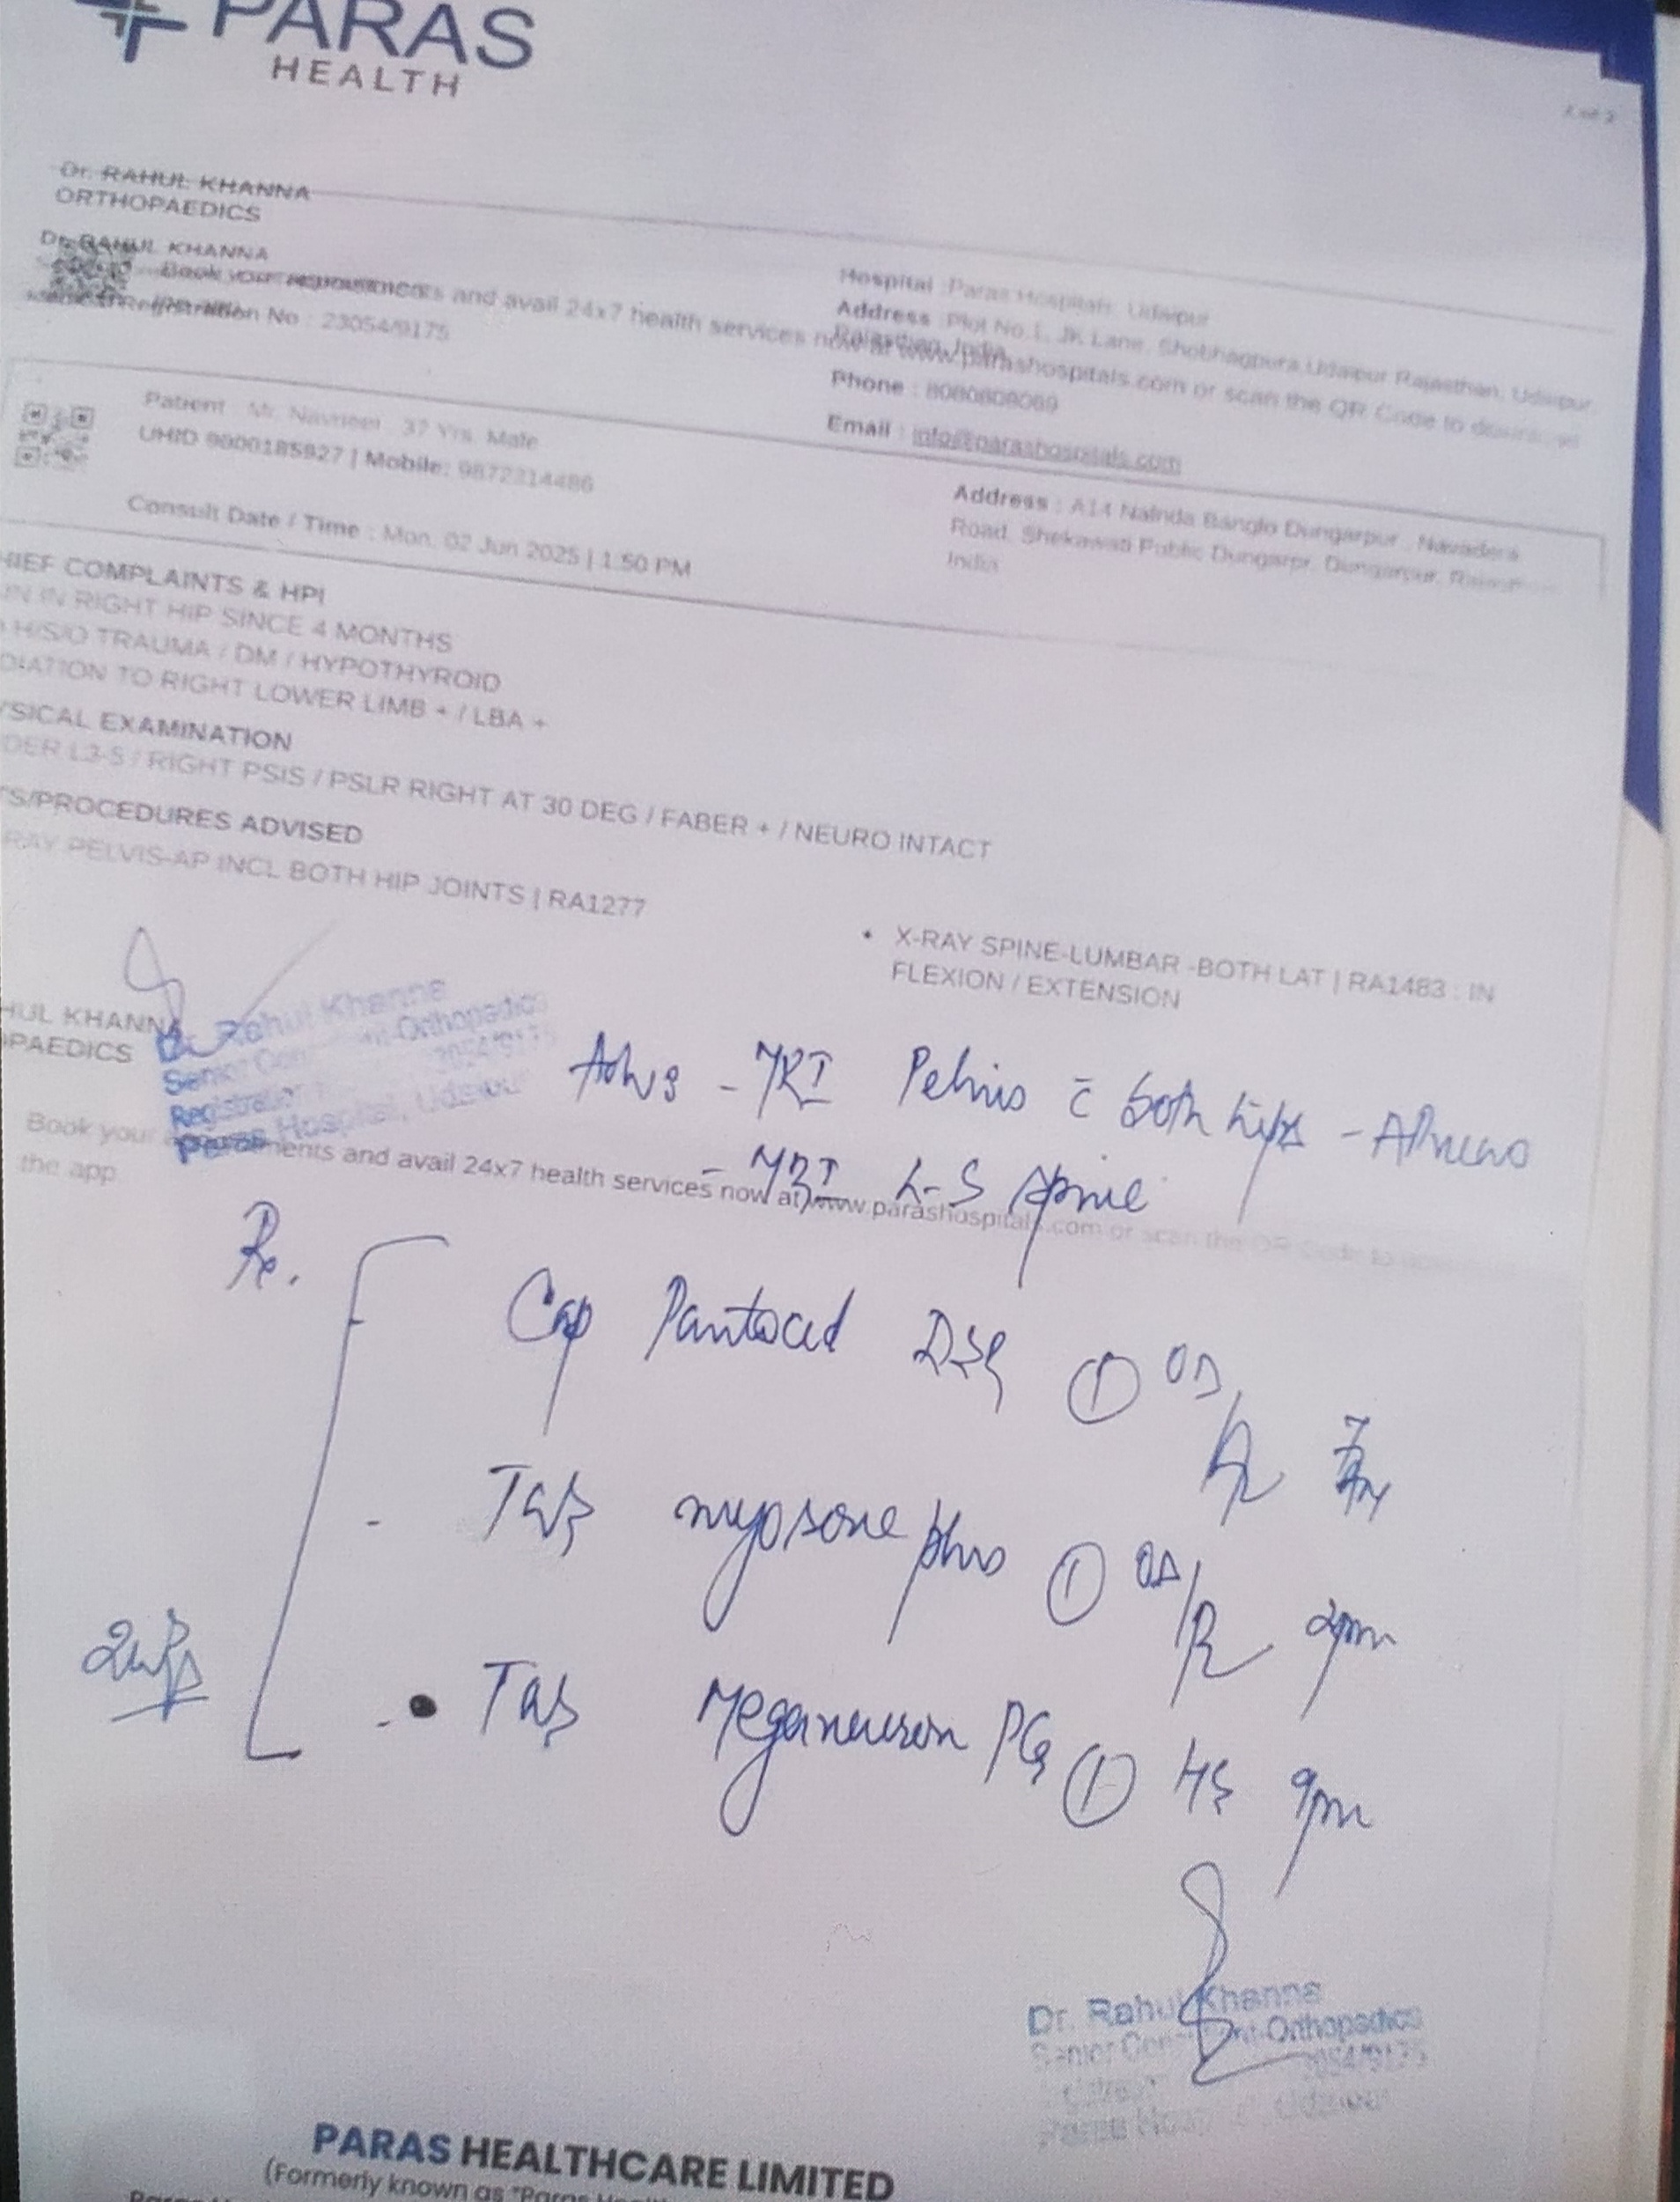 PARAS
HEALTH
Dr. RAHUL KHANNA
ORTHOPAEDICS
Dr. RAHUL KHANNA
Book your and avail 24x7 health services now at www.parashospitals.com or scan the QR Code to download
Registration No : 23054/9175
Hospital : Paras Hospitals, Udaipur
Address : Plot No.1, JK Lane, Shobhagpura Udaipur Rajasthan, Udaipur,
Rajasthan, India
Phone : 8080808069
Email : info@parashospitals.com
Patient : Mr. Navneet , 37 Yrs, Male
UHID 9800185927 | Mobile: 9872214486
Consult Date / Time : Mon, 02 Jun 2025 | 1:50 PM
Address : A14 Nalnda Banglo Dungarpur , Navadera
Road, Shekawati Public Dungarpr, Dungarpur,
India
HIEF COMPLAINTS & HPI
IN IN RIGHT HIP SINCE 4 MONTHS
H/S/O TRAUMA / DM / HYPOTHYROID
DIATION TO RIGHT LOWER LIMB + / LBA +
YSICAL EXAMINATION
DER L3-5 / RIGHT PSIS / PSLR RIGHT AT 30 DEG / FABER + / NEURO INTACT
TS/PROCEDURES ADVISED
RAY PELVIS-AP INCL BOTH HIP JOINTS | RA1277
• X-RAY SPINE-LUMBAR -BOTH LAT | RA1483 : IN
FLEXION / EXTENSION
HUL KHANNA
OPAEDICS
Dr. Rahul Khanna
Senior Orthopedics
Registration
Paras Hospital, Udaipur
- MRI Pelvis c̄ both hips -
- MRI L-S Spine
Book your and avail 24x7 health services now at www.parashospitals.com or scan the QR Code to
the app
Rx.
Cap Pantocid DSR ① OD
Tab myosone plus ① OD 2pm
2wks
Tab Meganeuron PG ① HS 9pm
Dr. Rahul Khanna
Senior Orthopedics
Paras Udaipur
PARAS HEALTHCARE LIMITED
(Formerly known as "Paras